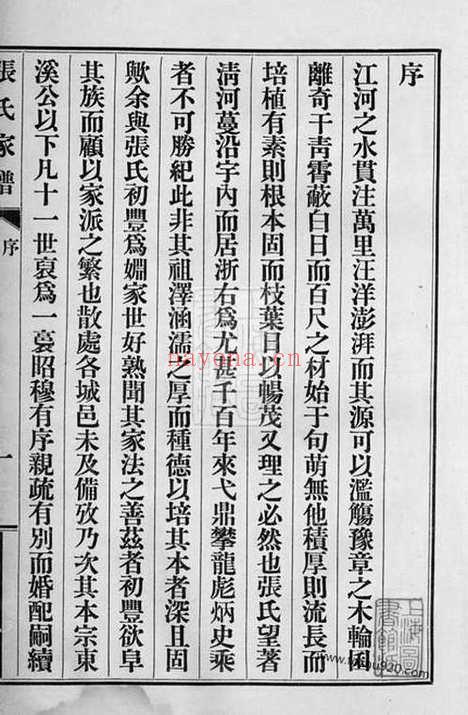 序
江河之水貫注萬里汪洋澎湃而其源可以濫觴豫章之木輪囷
離奇干靑霄蔽白日而百尺之材始于句萌無他積厚則流長而
培植有素則根本固而枝葉日以暢茂又理之必然也張氏望著
淸河蔓沿宇內而居浙右爲尤甚千百年來弋鼎攀龍彪炳史乘
者不可勝紀此非其祖澤涵濡之厚而種德以培其本者深且固
歟余與張氏初豐爲婣家世好熟聞其家法之善茲者初豐欲阜
其族而顧以家派之繁也散處各城邑未及備攷乃次其本宗東
溪公以下凡十一世裒爲一袠昭穆有序親疏有別而婚配嗣續
張氏家譜
序
一
nayona.cn
上海圖書館藏